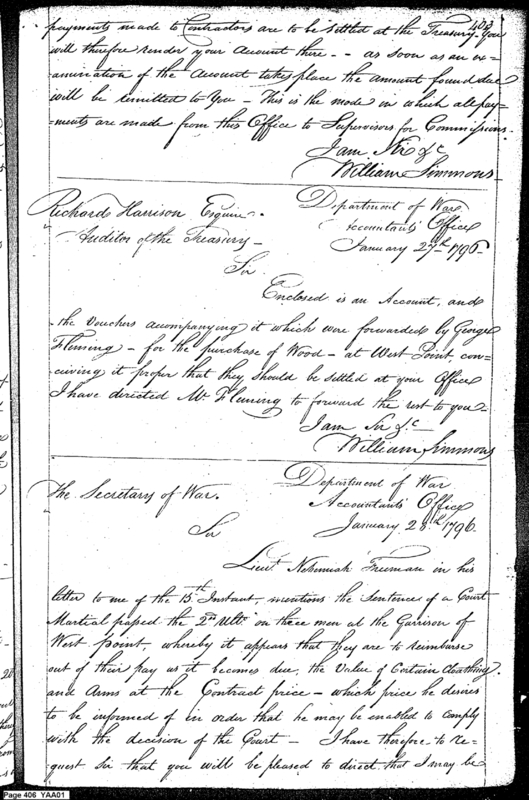 403
payments made to Contractors are to be settled at the Treasury. You
will therefore render your Account there - - as soon as an ex-
-amination of the Account takes place the amount found due
will be remitted to You - This is the mode in which all pay-
-ments are made from this Office to Supervisors for Commissions.
I am Sir &c
William Simmons
Richard Harrison Esquire.
Auditor of the Treasury -
Department of War
Accountants Office
January 27th 1796
Sir
Enclosed is an Account, and
the Vouchers accompanying it which were forwarded by George
Fleming - for the purchase of Wood - at West Point, con-
ceiving it proper that they should be settled at your Office
I have directed Mr Fleming to forward the rest to you -
I am Sir &c -
William Simmons
The Secretary of War.
Department of War
Accountants Office
January 28th 1796
Sir
Lieut. Nehemiah Freeman in his
letter to me of the 15th Instant, mentions the Sentence of a Court
Martial passed the 2nd Ulto. on three men at the Garrison of
West point, whereby it appears that they are to reimburse
out of their pay as it becomes due, the Value of Certain Cloathing
and Arms at the Contract price - which price he desires
to be informed of in order that he may be enabled to comply
with the decision of the Court - I have therefore to re-
quest Sir that you will be pleased to direct that I may be
Page 406 YAA01